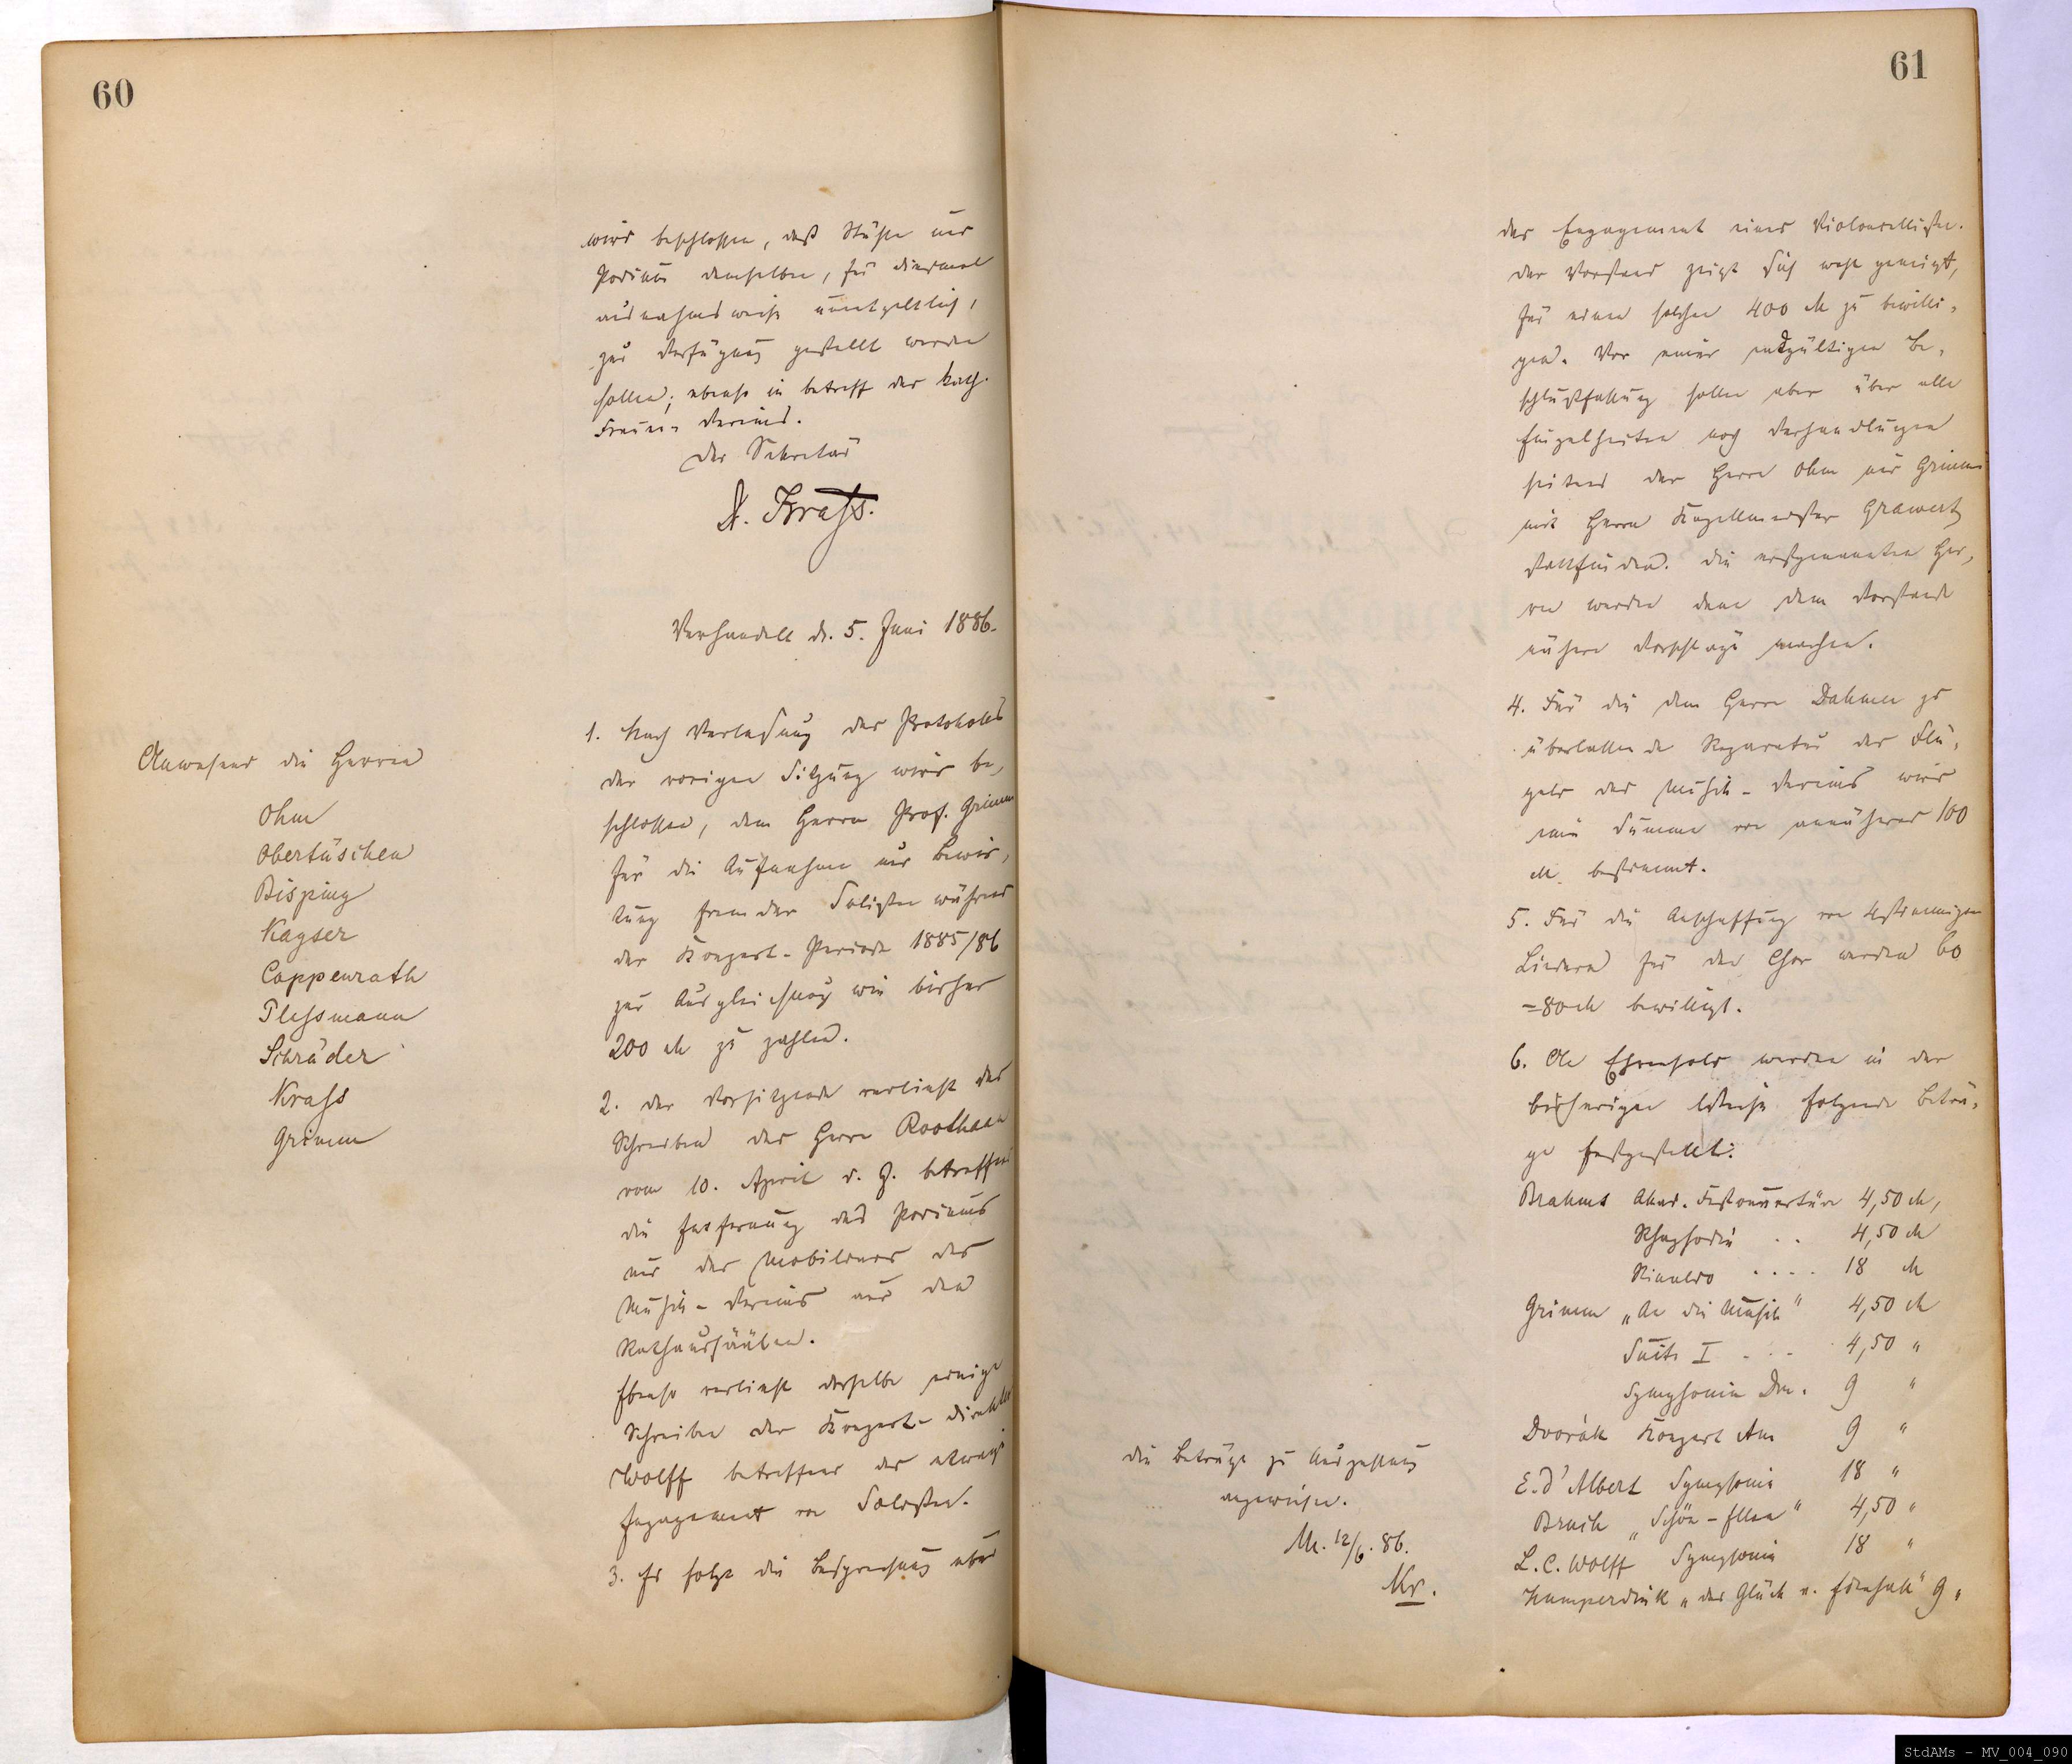 60
wird beschlossen, daß Stühle und
Podium demselben, für diesmal
ausnahmsweise unentgeltlich,
zur Verfügung gestellt werden
sollen; ebenso in betreff des kath.
Frauen-Vereins.
Der Sekretär
Dr. Krass.
Verhandelt d. 5. Juni 1886.
Anwesend die Herren
Ohm
Obertüschen
Bisping
Kayser
Cappenrath
Plessmann
Schräder
Krass
Grimm
1. Nach Verlesung des Protokolls
der vorigen Sitzung wird be-
schlossen, dem Herrn Prof. Grimm
für die Aufnahme und Bewir-
tung fremder Solisten während
der Konzert-Periode 1885/86
zur Ausgleichung wie bisher
200 M zu zahlen.
2. Der Vorsitzende verliest das
Schreiben des Herrn Roothaan
vom 10. April d. J. betreffend
die Entfernung des Podiums
und des Mobilars des
Musik-Vereins aus den
Rathaussäälen.
Ebenso verliest derselbe einige
Schreiben der Konzert-Direktion
Wolff betreffend das etwaige
Engagement von Solisten.
3. Es folgt die Besprechung über
61
das Engagement eines Violoncellisten.
Der Vorstand zeigt sich wohl geneigt,
für einen solchen 400 M zu bewilli-
gen. Vor einer endgültigen Be-
schlußfassung sollen aber über alle
Einzelheiten noch Verhandlungen
seitens der Herrn Ohm und Grimm
mit Herrn Kapellmeister Grawert
stattfinden. Die erstgenannten Her-
ren werden dann dem Vorstande
nähere Vorschläge machen.
4. Für die dem Herrn Dahmen zu
überlassende Reparatur des Flü-
gels des Musik-Vereins wird
eine Summe von annähernd 100
M. bestimmt.
5. Für die Anschaffung von 4stimmigen
Liedern für den Chor werden 60
-80 M bewilligt.
6. An Ehrensold werden in der
bisherigen Weise folgende Beträ-
ge festgestellt:
Brahms Akad. Festouvertüre 4,50 M,
Rhapsodie . . 4,50 M
Rinaldo . . . . 18 M
Grimm „An die Musik" 4,50 M
Suite I . . . 4,50 "
Symphonie Dm. 9 "
Dvořák Konzert Am 9 "
E. d'Albert Symphonie 18 "
Bruch „Schön-Ellen" 4,50 "
L. C. Wolff Symphonie 18 "
Humperdink „das Glück v. Edenhall" 9 "
Die Beträge zur Auszahlung
angewiesen.
M. 12/6. 86.
Kr.
StdAMs - MV_004_090